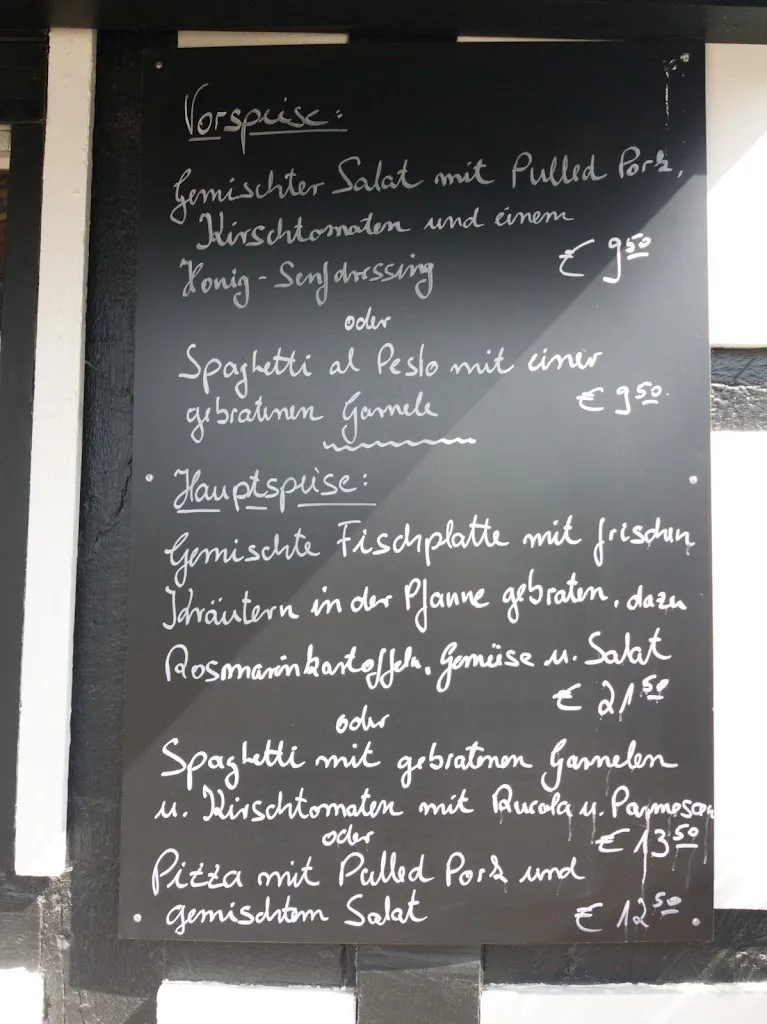 Vorspeise:
Gemischter Salat mit Pulled Pork,
Kirschtomaten und einem
Honig-Senfdressing € 9 50
oder
Spaghetti al Pesto mit einer
gebratenen Garnele € 9 50.
Hauptspeise:
Gemischte Fischplatte mit frischen
Kräutern in der Pfanne gebraten, dazu
Rosmarinkartoffeln, Gemüse u. Salat
€ 21 50
oder
Spaghetti mit gebratenen Garnelen
u. Kirschtomaten mit Rucola u. Parmesan
oder € 13 50
Pizza mit Pulled Pork und
gemischtem Salat € 12 50